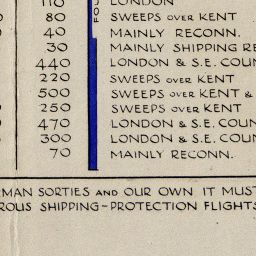 110 LONDON
80 SWEEPS OVER KENT
40 MAINLY RECONN.
30 MAINLY SHIPPING RE
440 LONDON & S.E. COUN
220 SWEEPS OVER KENT
500 SWEEPS OVER KENT &
250 SWEEPS OVER KENT
470 LONDON & S.E. COUN
300 LONDON & S.E. COUN
70 MAINLY RECONN.
MAN SORTIES AND OUR OWN IT MUST
ROUS SHIPPING-PROTECTION FLIGHTS